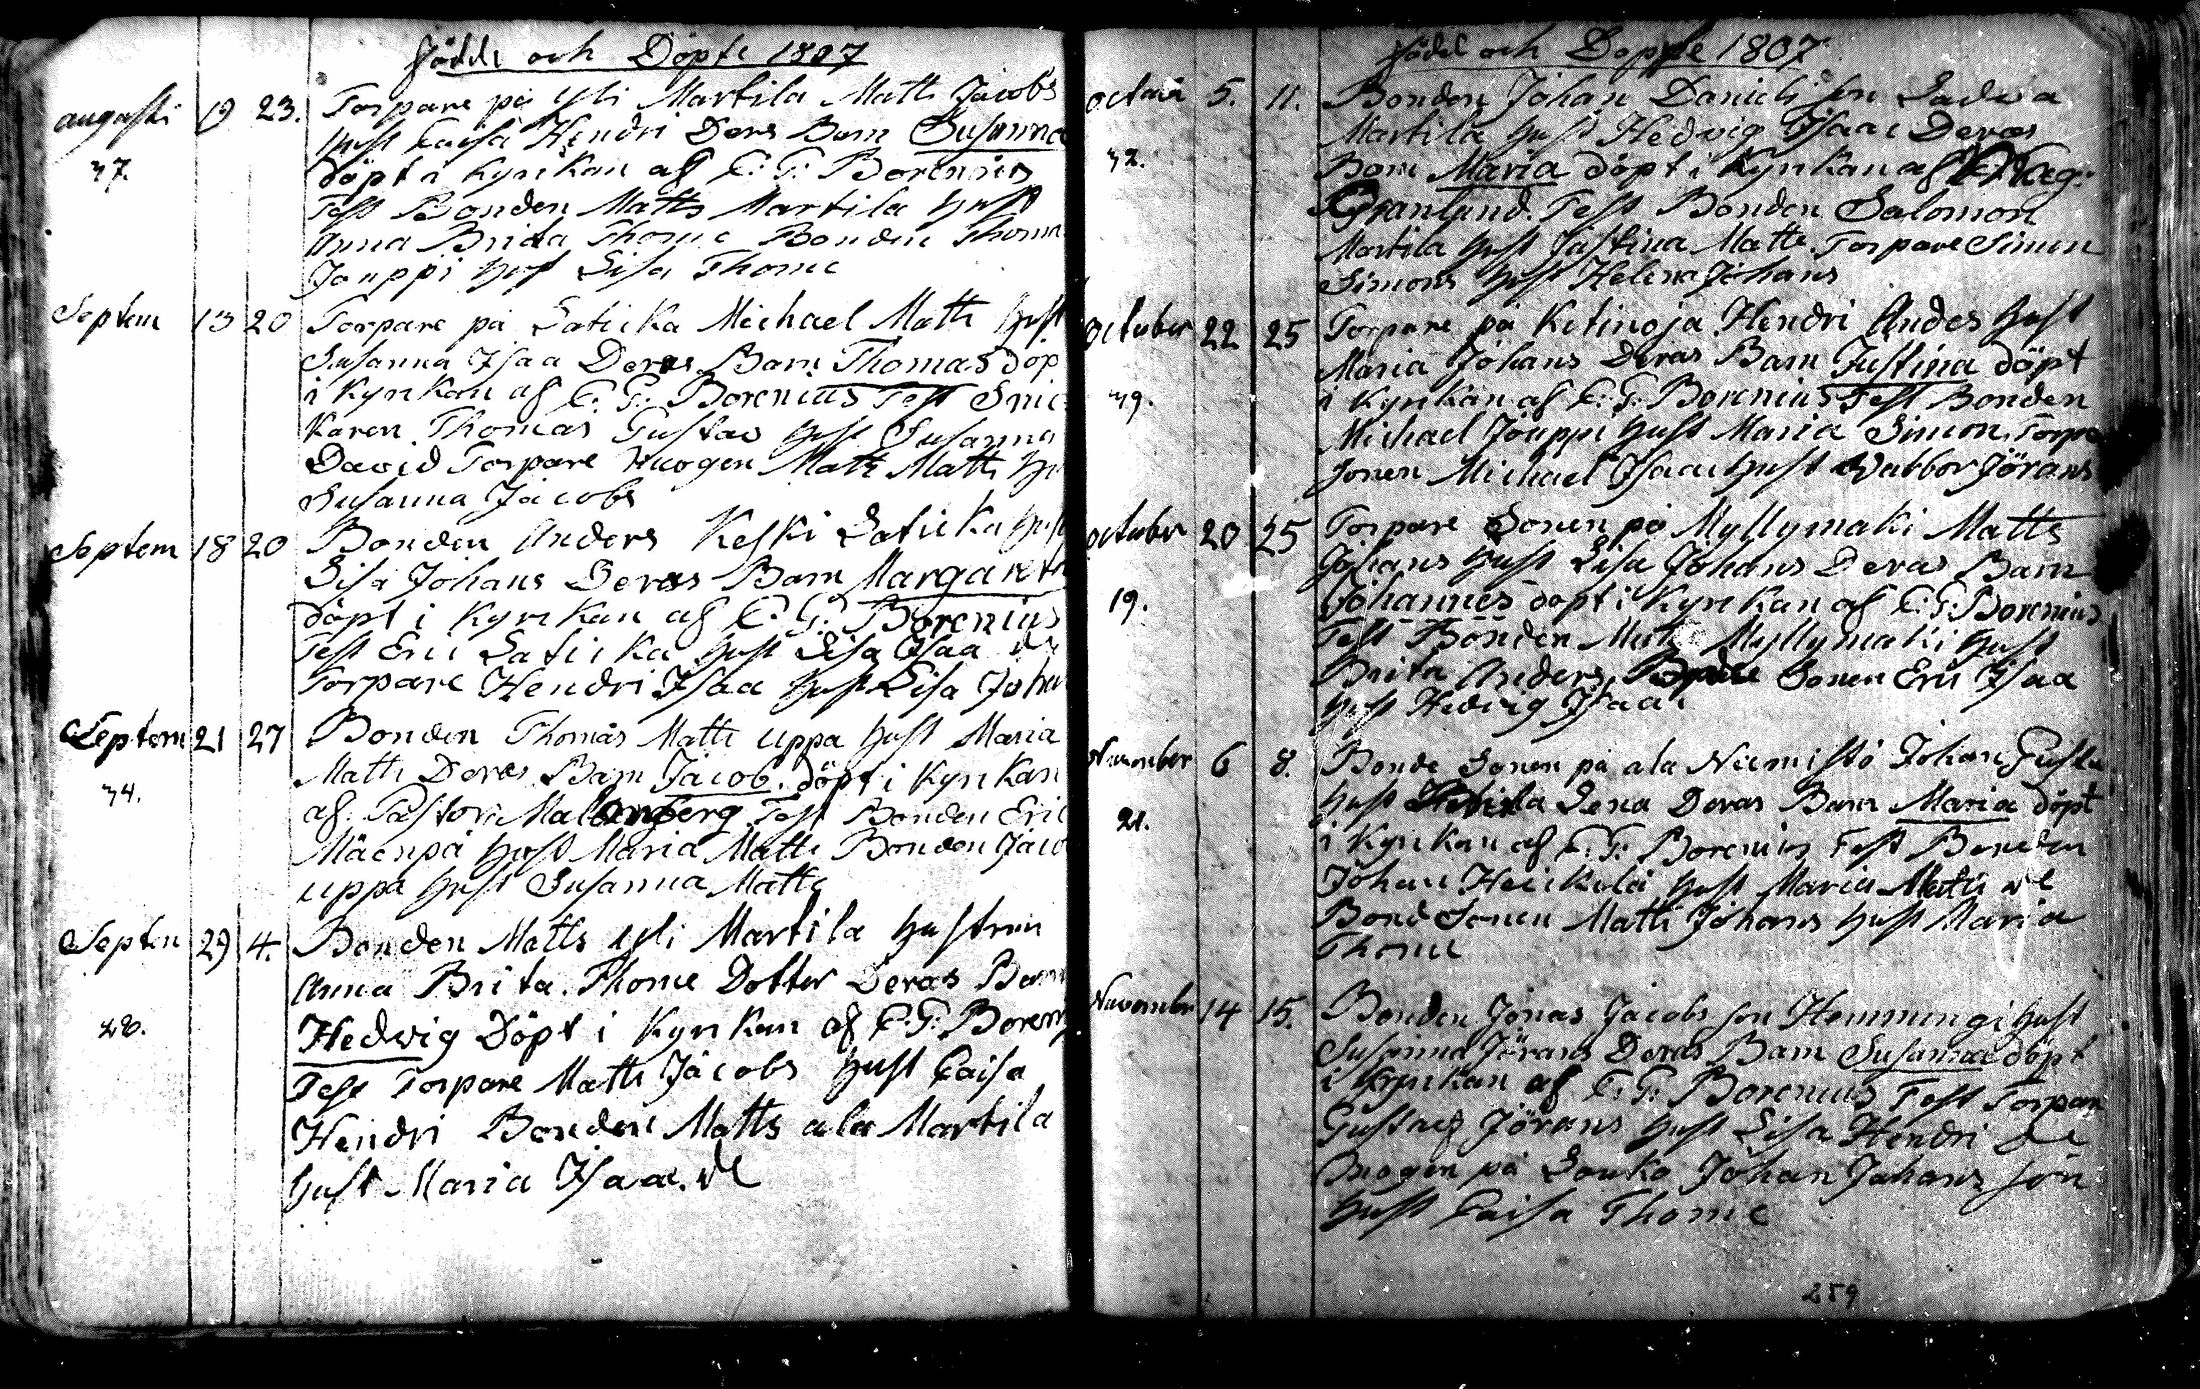 Födde och Döpte 1807
augusti 19 23. Torpare på Yli Martila Matts Jacobs
Hust Caisa Hendri Deras Barn Susanna
37. döpt i Kyrkan af C. G. Borenius
Test Bonden Matts Martila Hust
Anna Brita Thome Bonden Thoma
Jouppi Hust Lisa Thome
Septem 13 20 Torpare på Laticka Michael Matts Hust
Susanna Isaa Deras Barn Thomas döp
i Kyrkan af C. G. Borenius Test Snic
Karen Thomas Gustav Hust Susanna
David Torpare Matts Matts Hu
Susanna Jacobs
Septem 18 20 Bonden Anders Keski Laticka Hust
Lisa Johans Deras Barn Margareta
döpt i Kyrkan af C. G. Borenius
Test Eric Laticka Hust Lisa Isaa
Torpare Hendri Isaa Hust Lisa Johan
Septem 21 27 Bonden Thomas Matts uppa Hust Maria
Matts Deras Barn Jacob döpt i Kyrkan
34. af Pastor Malmberg Test Bonden Eric
Mäenpä Hust Maria Matts Bonden Jaco
uppa Hust Susanna Matts
Septem 29 4. Bonden Matts Yli Martila Hustrun
Anna Brita Thome Dotter Deras Barn
28. Hedvig Döpt i Kyrkan af C. G. Boreni
Test Torpare Matts Jacobs Hust Caisa
Hendri Bonden Matts ala Martila
Hust Maria Isaa. de
Födde och Doppte 1807
5. 11. Bonden Johan Daniels son
Martila Hust Hedvig Isaac Deras
32. Barn Maria döpt i Kyrkan af
Granlund. Test Bonden Salomon
Martila Hust Justina Matts. Torpare Simon
Simons Hust Helena Johans
October 22 25 Torpare på Ketinoja Hendri Andes Hust
Maria Johans Deras Barn Justina döpt
39. i Kyrkan af C. G. Borenius Test Bonden
Michael Jouppi Hust Maria Simon. Torpa
Sonen Michael Isaac Hust Wabbor Jörans
October 20 25 Torpare Sonen på Myllymaki Matts
Johans Hust Lisa Johans Deras Barn
19. Johannes döpt i Kyrkan af C. G. Borenius
Test Bonden Matts Myllymaki Hust
Brita Anders. Sonen Eric Isaa
Hust Hedvig Isaac
November 6 8. Bonde Sonen på ala Niemistö Johan Gusta
Hust Lena Deras Barn Maria döpt
21. i Kyrkan af C. G. Borenius Test Bonden
Johan Heickilä Hust Maria Matts de
Bond Sonen Matts Johans Hust Maria
Thome
November 14 15. Bonden Jonas Jacobs son Hemmingi Hust
Susanna Jörans Deras Barn Susanna döpt
i Kyrkan af C. G. Borenius Test Torpare
Gustaf Jörans Hust Lisa Hendri de
på Louko Johan Johans son
Hust Caisa Thome
259